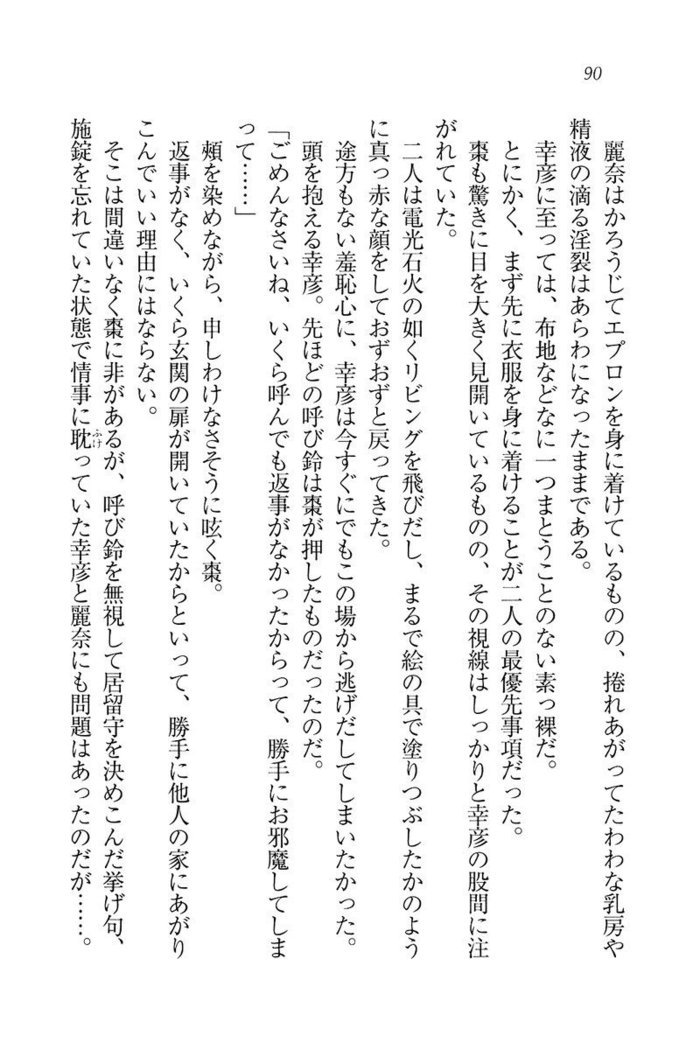 90
麗奈はかろうじてエプロンを身に着けているものの、捲れあがってたわわな乳房や
精液の滴る淫裂はあらわになったままである。
幸彦に至っては、布地などなに一つまとうことのない素っ裸だ。
とにかく、まず先に衣服を身に着けることが二人の最優先事項だった。
棗も驚きに目を大きく見開いているものの、その視線はしっかりと幸彦の股間に注
がれていた。
二人は電光石火の如くリビングを飛びだし、まるで絵の具で塗りつぶしたかのよう
に真っ赤な顔をしておずおずと戻ってきた。
途方もない羞恥心に、幸彦は今すぐにでもこの場から逃げだしてしまいたかった。
頭を抱える幸彦。先ほどの呼び鈴は棗が押したものだったのだ。
「ごめんなさいね、いくら呼んでも返事がなかったからって、勝手にお邪魔してしま
って……」
頰を染めながら、申しわけなさそうに呟く棗。
返事がなく、いくら玄関の扉が開いていたからといって、勝手に他人の家にあがり
こんでいい理由にはならない。
そこは間違いなく棗に非があるが、呼び鈴を無視して居留守を決めこんだ挙げ句、
施錠を忘れていた状態で情事に耽ふけっていた幸彦と麗奈にも問題はあったのだが……。